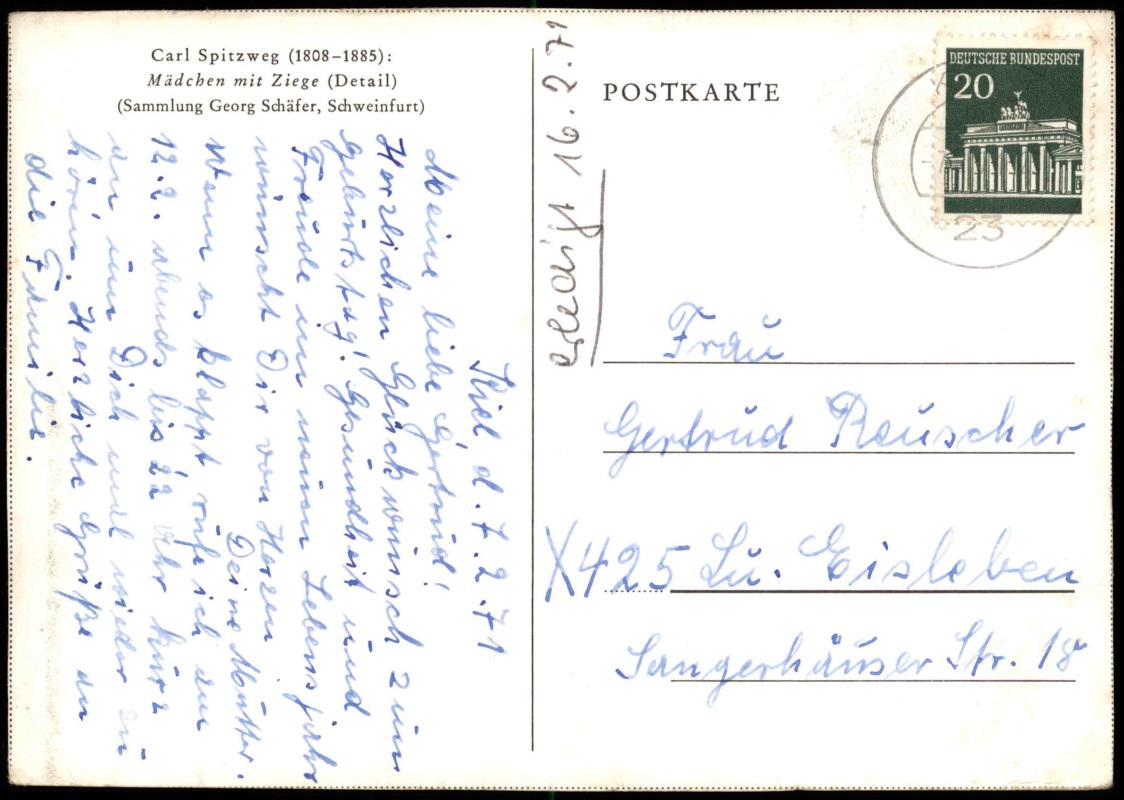 Carl Spitzweg (1808–1885):
Mädchen mit Ziege (Detail)
(Sammlung Georg Schäfer, Schweinfurt)
Kiel, d. 7.2.71
Meine liebe Gertrud!
Herzlichen Glückwünsch zum
Geburtstag! Gesundheit und
Freude im neuen Lebensjahr
wünscht Dir von Herzen
Deine Mutter.
Wenn es klappt rufe ich am
12.2. abends bis 22 Uhr kurz
an um Dich mal wieder zu
hören. Herzliche Grüße an
die Familie.
erledigt 16.2.71
POSTKARTE
DEUTSCHE BUNDESPOST
20
23
Frau
Gertrud Reuscher
X425 Lu. Eisleben
Sangerhäuser Str. 18